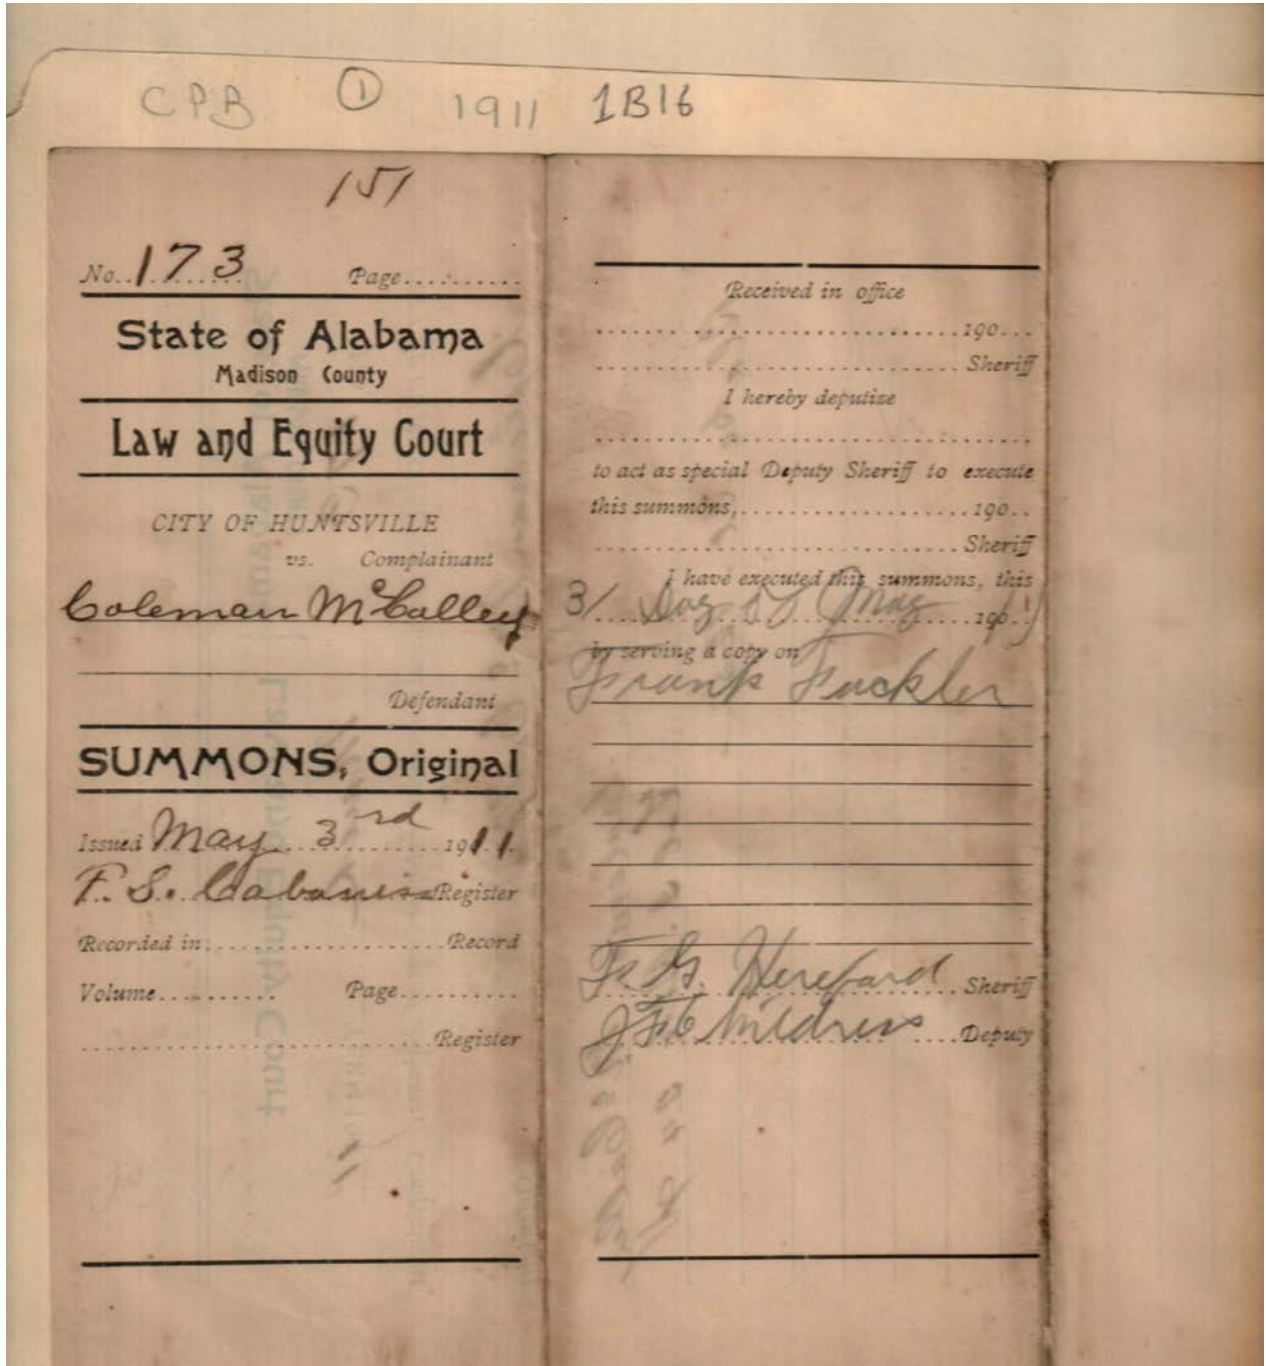 CPB ① 1911 1B16
151
No. 173 Page
State of Alabama
Madison County
Law and Equity Court
CITY OF HUNTSVILLE
vs. Complainant
Coleman McCalley
Defendant
SUMMONS, Original
Issued May 3rd 1911
F. S. Cabaniss Register
Recorded in Record
Volume Page
Register
Received in office
190
Sheriff
I hereby deputize
to act as special Deputy Sheriff to execute
this summons, 190
Sheriff
I have executed this summons, this
31 Day of May 1911
by serving a copy on
Frank Fackler
F. G. Hereford Sheriff
J. F. Childress Deputy